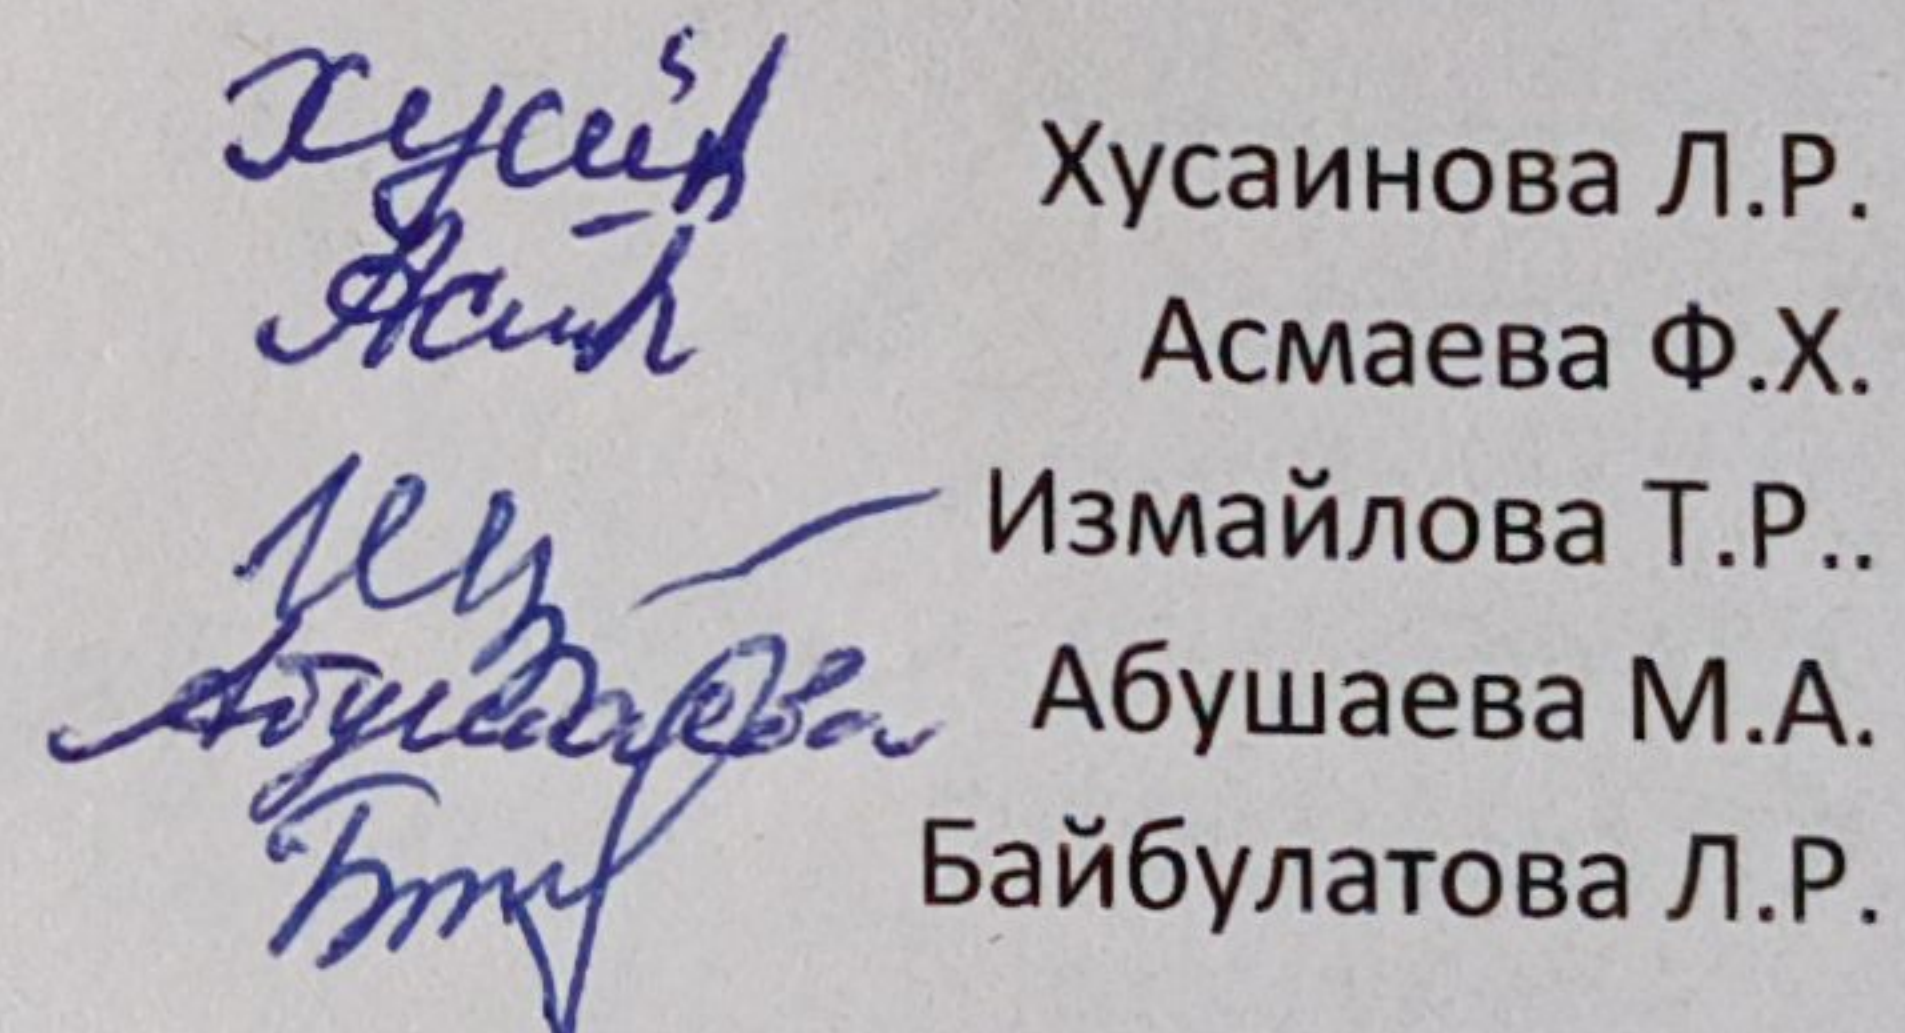 Хусаинова Л.Р.
Асмаева Ф.Х.
Измайлова Т.Р..
Абушаева Абушаева М.А.
Байбулатова Л.Р.